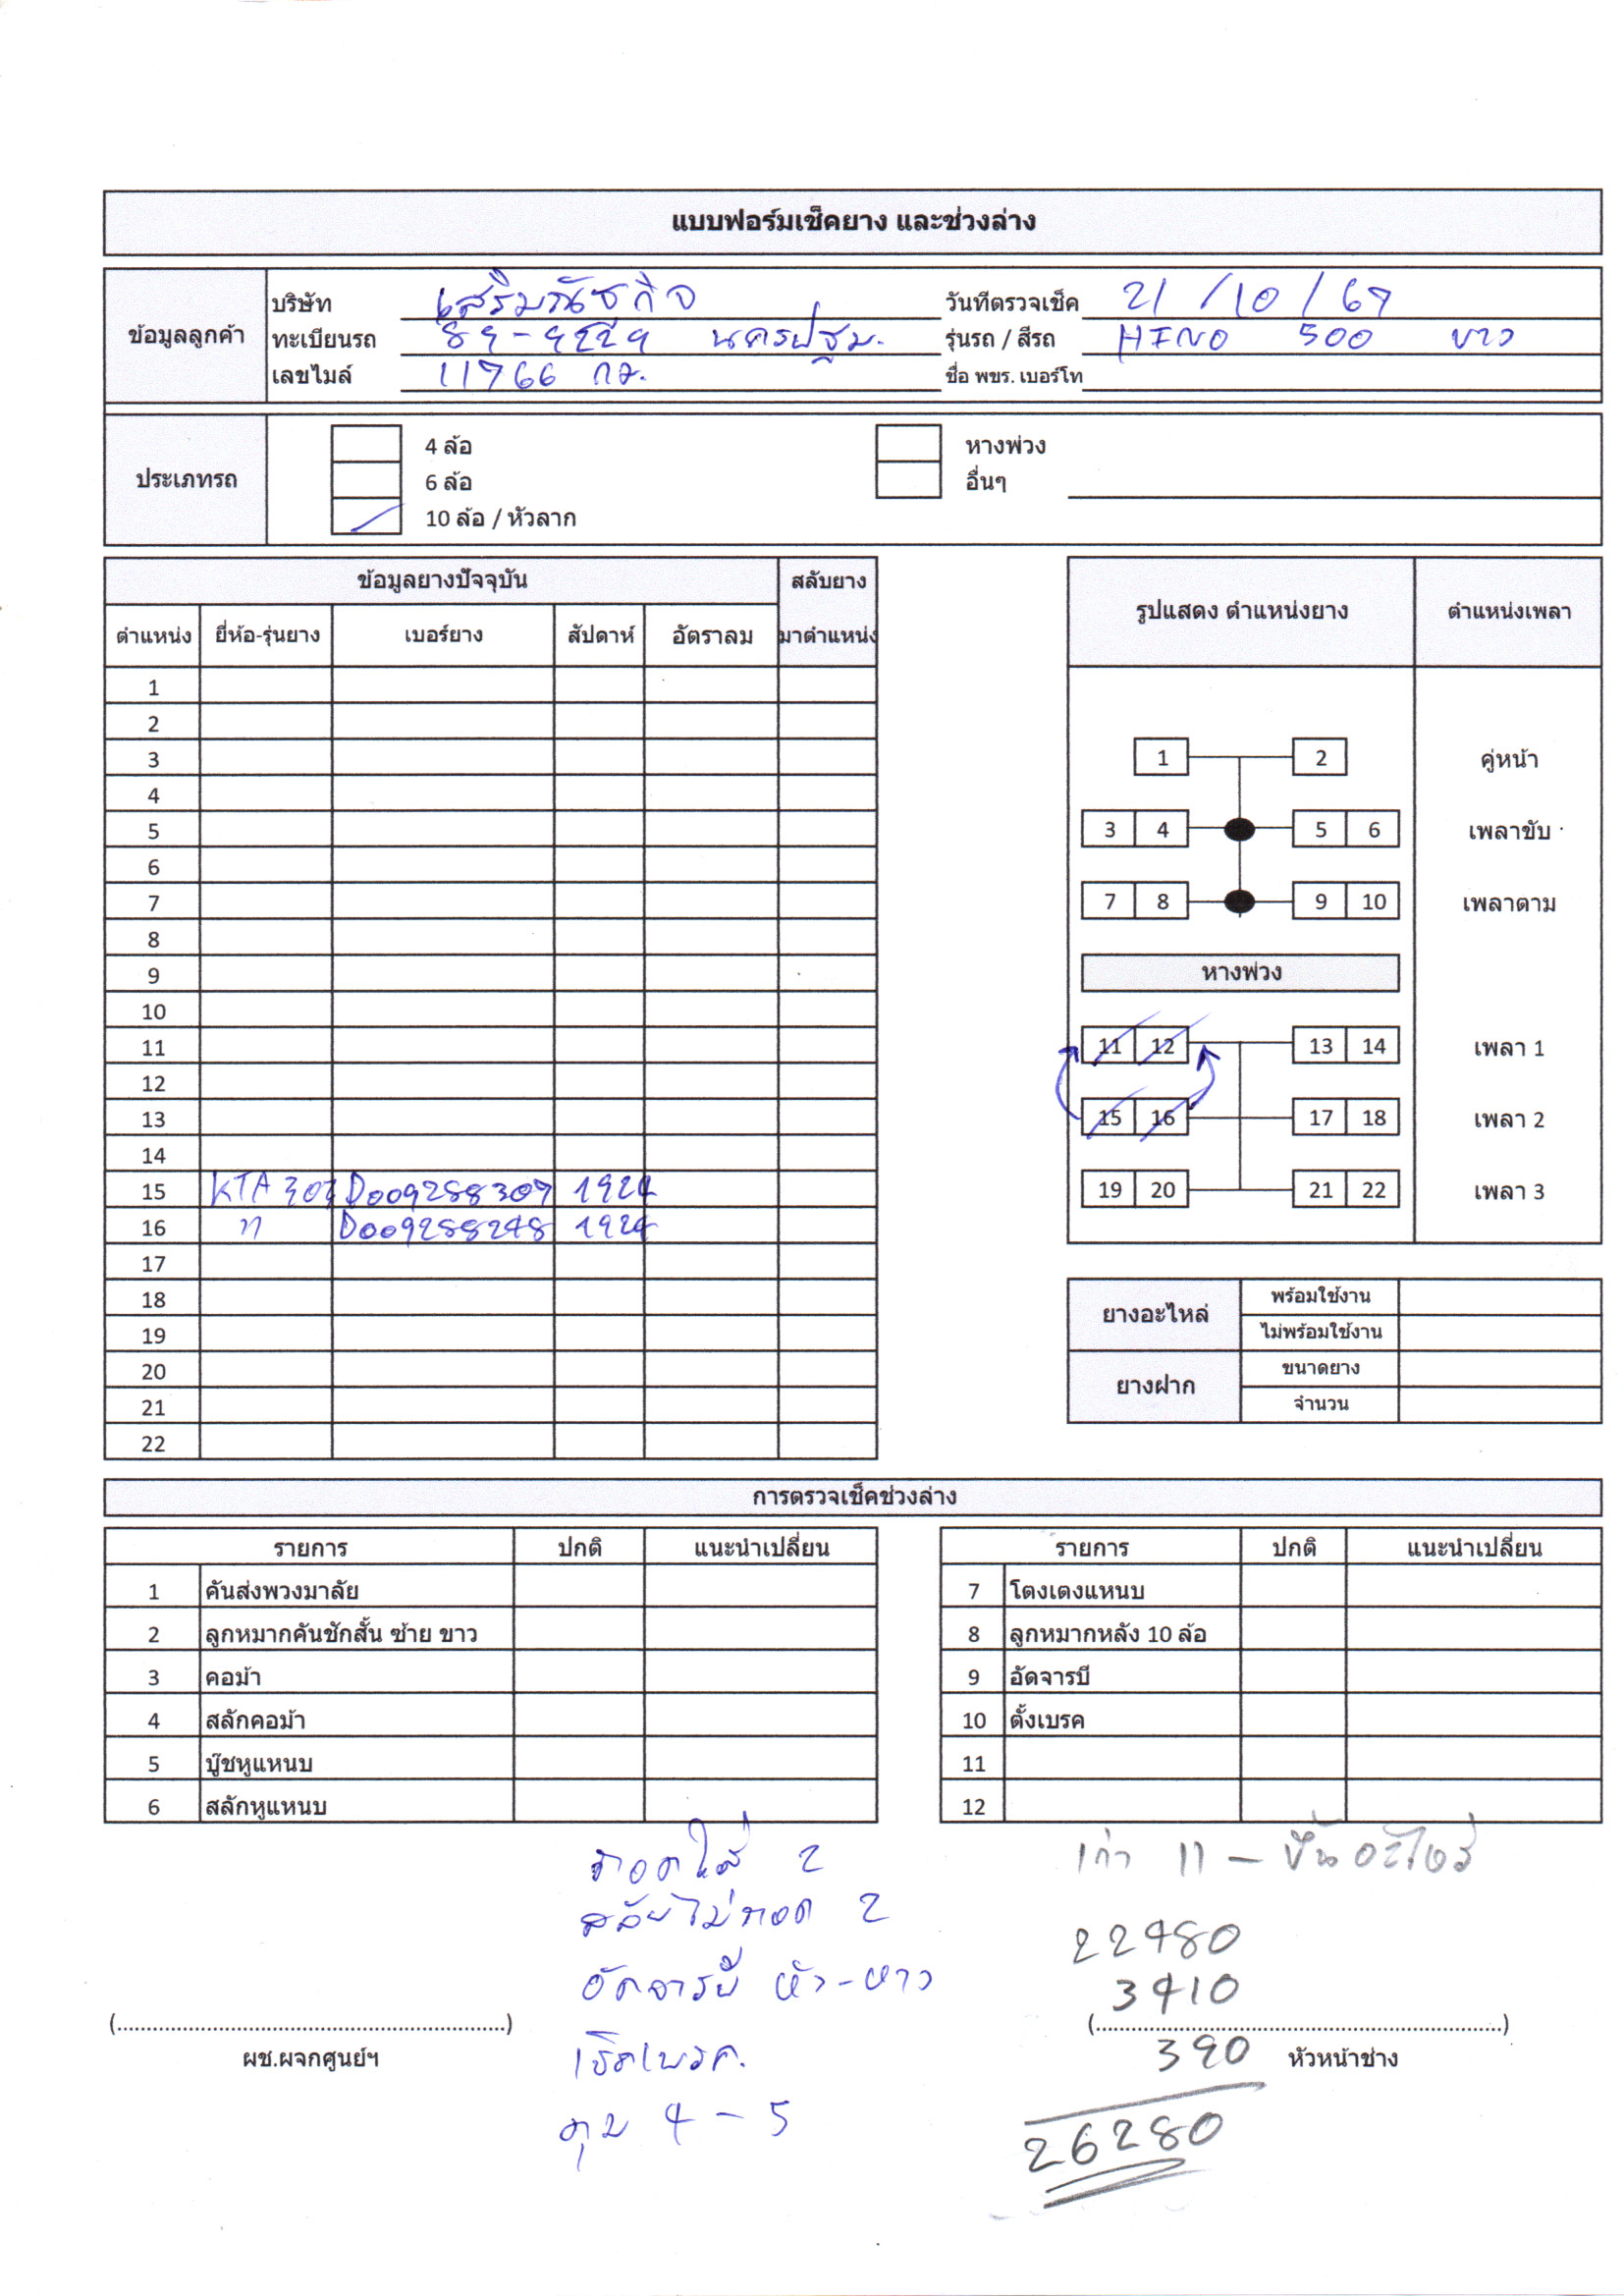 แบบฟอร์มเช็คยาง และช่วงล่าง
ข้อมูลลูกค้า
บริษัท เสริมณัชกิจ วันที่ตรวจเช็ค 21 / 10 / 67
ทะเบียนรถ นครปฐม. รุ่นรถ / สีรถ HINO 500 ขาว
เลขไมล์ 11766 กม. ชื่อ พขร. เบอร์โท
ประเภทรถ
4 ล้อ หางพ่วง
6 ล้อ อื่นๆ
10 ล้อ / หัวลาก
ข้อมูลยางปัจจุบัน สลับยาง
ตำแหน่ง ยี่ห้อ-รุ่นยาง เบอร์ยาง สัปดาห์ อัตราลม มาตำแหน่ง
1
2
3
4
5
6
7
8
9
10
11
12
13
14
15 KTA 303 D009288307 1924
16 " D009288248 1924
17
18
19
20
21
22
รูปแสดง ตำแหน่งยาง ตำแหน่งเพลา
1 2 คู่หน้า
3 4 5 6 เพลาขับ
7 8 9 10 เพลาตาม
หางพ่วง
11 12 13 14 เพลา 1
15 16 17 18 เพลา 2
19 20 21 22 เพลา 3
ยางอะไหล่ พร้อมใช้งาน
ไม่พร้อมใช้งาน
ยางฝาก ขนาดยาง
จำนวน
การตรวจเช็คช่วงล่าง
รายการ ปกติ แนะนำเปลี่ยน
1 คันส่งพวงมาลัย
2 ลูกหมากคันชักสั้น ซ้าย ขาว
3 คอม้า
4 สลักคอม้า
5 บู๊ชหูแหนบ
6 สลักหูแหนบ
รายการ ปกติ แนะนำเปลี่ยน
7 โตงเตงแหนบ
8 ลูกหมากหลัง 10 ล้อ
9 อัดจารบี
10 ตั้งเบรค
11
12
ถอดใส่ 2
สลับไม่ถอด 2
อัดจารบี หัว-หาง
เช็คเบรค.
คุม 4 - 5
เก่า 11 - ขึ้นอะไหล่
22480
3410
390
26280
(................................................................)
ผช.ผจกศูนย์ฯ
(................................................................)
หัวหน้าช่าง